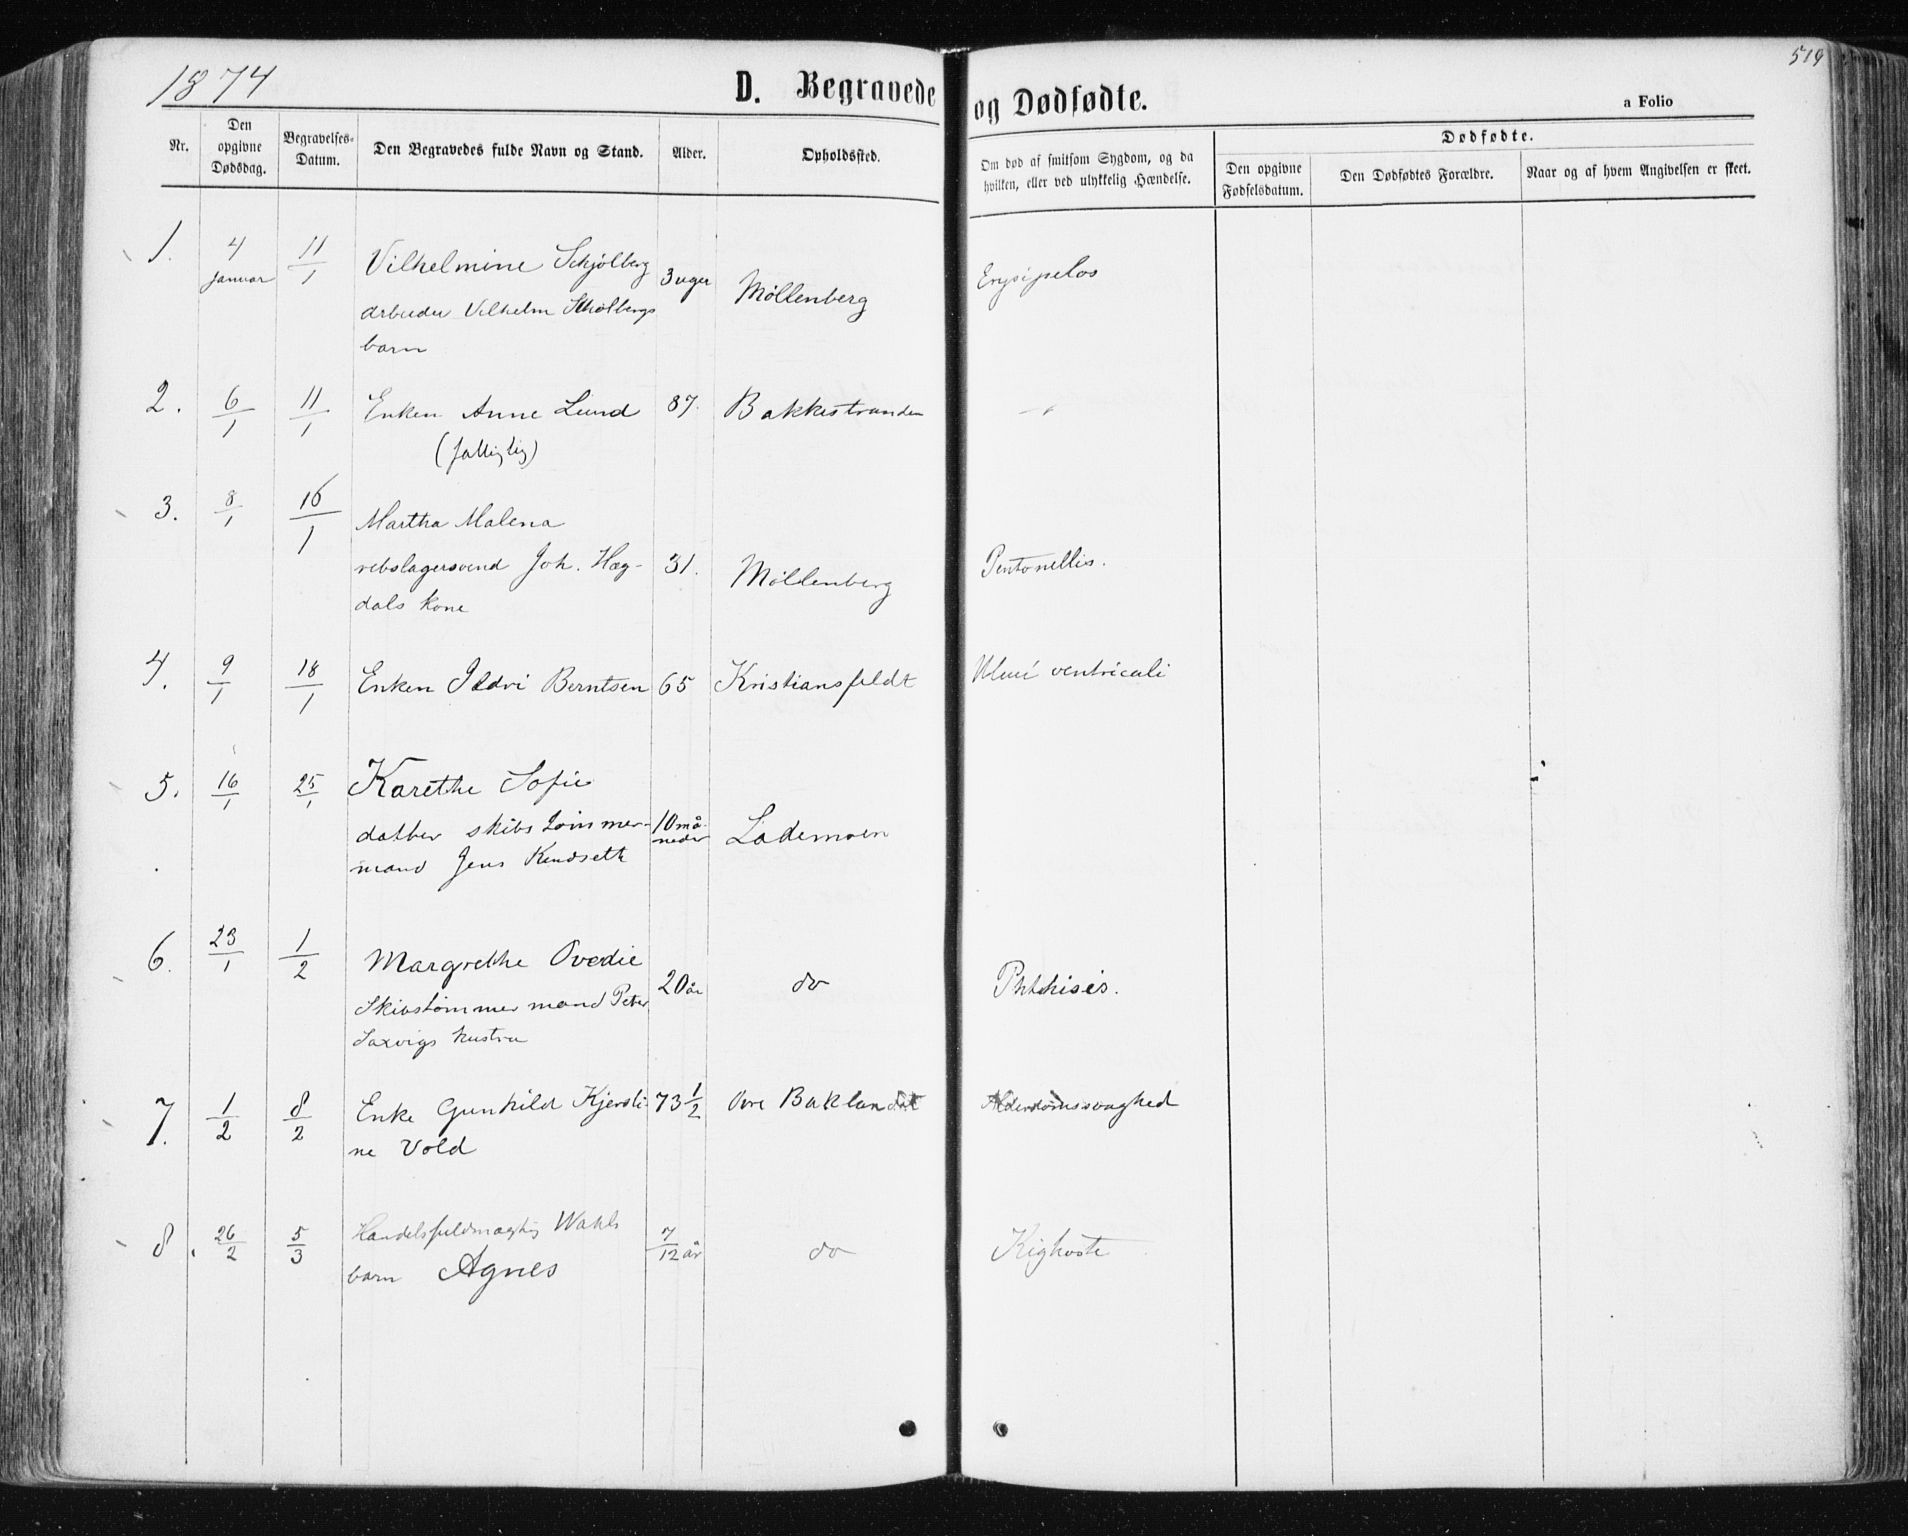 1874
D. Begravede og Dødfødte.
519
a Folio
Nr.
Den opgivne Dødsdag.
Begravelses-Datum.
Den Begravedes fulde Navn og Stand.
Alder.
Opholdssted.
Om død af smitsom Sygdom, og da hvilken, eller ved ulykkelig Hændelse.
Dødfødte.
Den opgivne Fødselsdatum.
Den Dødfødtes Forældre.
Naar og af hvem Angivelsen er skeet.
1. 4 Januar 11/1 Vilhelmine Schjølberg 3 uger Möllenberg Erysipelas
arbeider Vilhelm Schølbergs
barn
2. 6/1 11/1 Enken Anne Lund 87. Bakkestranden —
(fattiglig)
3. 8/1 16/1 Martha Malena
rebslagersvend Joh. Hæg- 31. Möllenberg
dals kone
4. 9/1 18/1 Enken Ildri Berntsen 65 Kristiansfeldt ventriculi
5. 16/1 25/1 Karethe Sofie
datter skibstömmer- 10 må-neder Lademoen
mand Jens
6. 23/1 1/2 Margrethe Ovedie
Skibstömmermand Peter 20 år do Phthisis.
Saxvigs hustru
7. 1/2 8/2 Enke Gunhild Kjersti- 73 1/2 Øvre Baklandet Alderdomssvaghed
ne Vold
8. 26/2 5/3 Handelsfuldmægtig Wahls 7/12 år do Kighoste
barn Agnes